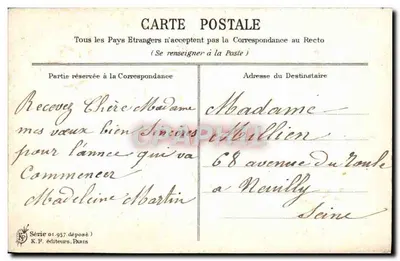 CARTE POSTALE
Tous les Pays Etrangers n'acceptent pas la Correspondance au Recto
(Se renseigner à la Poste)
Partie réservée à la Correspondance
Recevez Chère Madame
mes vœux bien Sincères
pour l'année qui va
Commencer
Madeleine Martin
Adresse du Destinataire
Madame
Millien
68 avenue du Roule
a Neuilly
Seine
Série 01.957 déposé)
K. F. éditeurs, Paris